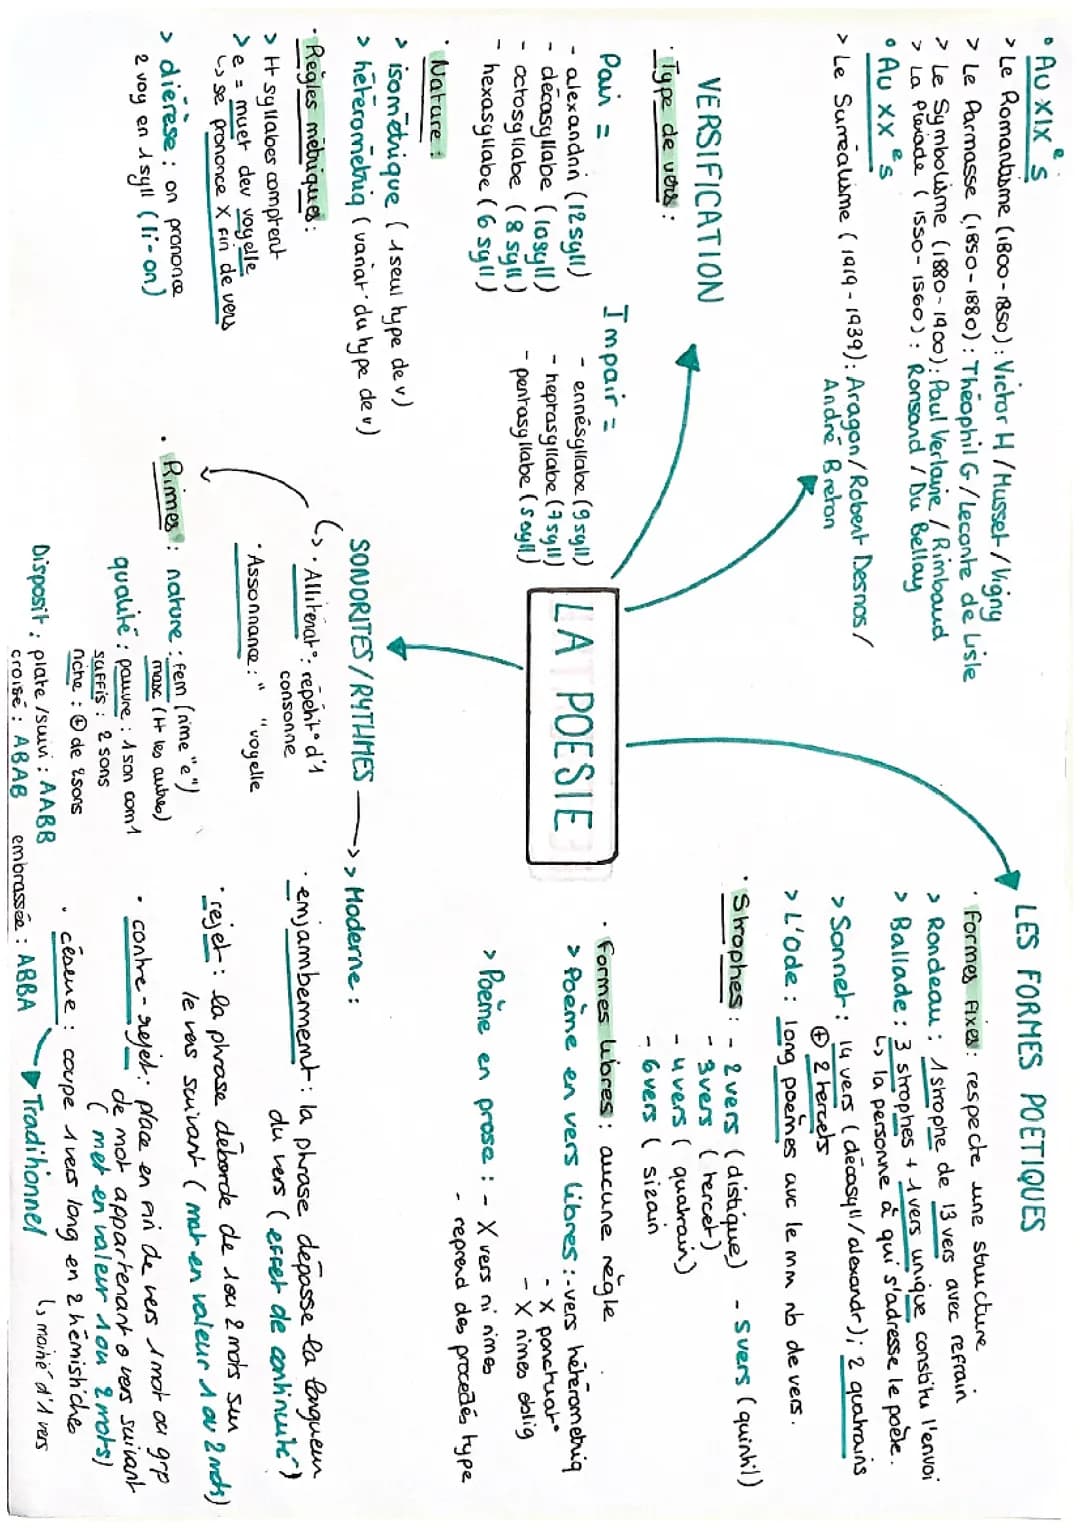 LA POESIE
• Au XIXe s
> Le Romantisme (1800-1850) : Victor H / Musset / Vigny
> Le Parnasse (1850-1880) : Théophil G / Leconte de Lisle
> Le Symbolisme (1880-1900) : Paul Verlaine / Rimbaud
> La Pléiade (1550-1560) : Ronsard / Du Bellay
• Au XXe s
> Le Surréalisme (1919-1939) : Aragon / Robert Desnos /
André Breton
VERSIFICATION
• Type de vers :
Pair =
- alexandrin (12 syll)
- décasyllabe (10 syll)
- octosyllabe (8 syll)
- hexasyllabe (6 syll)
Impair =
- ennésyllabe (9 syll)
- heptasyllabe (7 syll)
- pentasyllabe (5 syll)
• Nature :
> isométrique (1 seul type de v)
> hétérométriq (variat° du type de v)
• Règles métriques :
> Tt syllabes comptent
> e = muet dev voyelle
↳ se prononce X fin de vers
> diérèse : on prononce
2 voy en 1 syll (li-on)
SONORITES / RYTHMES → > Moderne :
↳ • Allitérat° : répétit° d'1
consonne
• Assonnance : " " voyelle
• Rimes : nature : fem (rime "e")
masc (tt les autres)
qualité : pauvre : 1 son com1
suffis : 2 sons
riche : ⊕ de 2 sons
Disposit : plate / suivi : AABB
croisé : ABAB embrassée : ABBA
• enjambement : la phrase dépasse la longueur
du vers (effet de continuité)
• rejet : la phrase déborde de 1 ou 2 mots sur
le vers suivant (met en valeur 1 ou 2 mots)
• contre-rejet : place en fin de vers 1 mot ou grp
de mot appartenant o vers suivant
(met en valeur 1 ou 2 mots)
• césure : coupe 1 vers long en 2 hémistiches
↳ moitié d'1 vers
Traditionnel
LES FORMES POETIQUES
• Formes fixes : respecte une structure
> Rondeau : 1 strophe de 13 vers avec refrain
> Ballade : 3 strophes + 1 vers unique constitu l'envoi
↳ la personne à qui s'adresse le poète.
> Sonnet : 14 vers (décasyll/alexandr) ; 2 quatrains
⊕ 2 tercets
> L'Ode : long poèmes avc le mm nb de vers.
• Strophes : - 2 vers (distique) - 5 vers (quintil)
- 3 vers (tercet)
- 4 vers (quatrain)
- 6 vers (sizain
• Formes libres : aucune règle
> Poème en vers libres : - vers hétérométriq
- X ponctuat°
- X rimes oblig
> Poème en prose : - X vers ni rimes
- reprend des procédés type